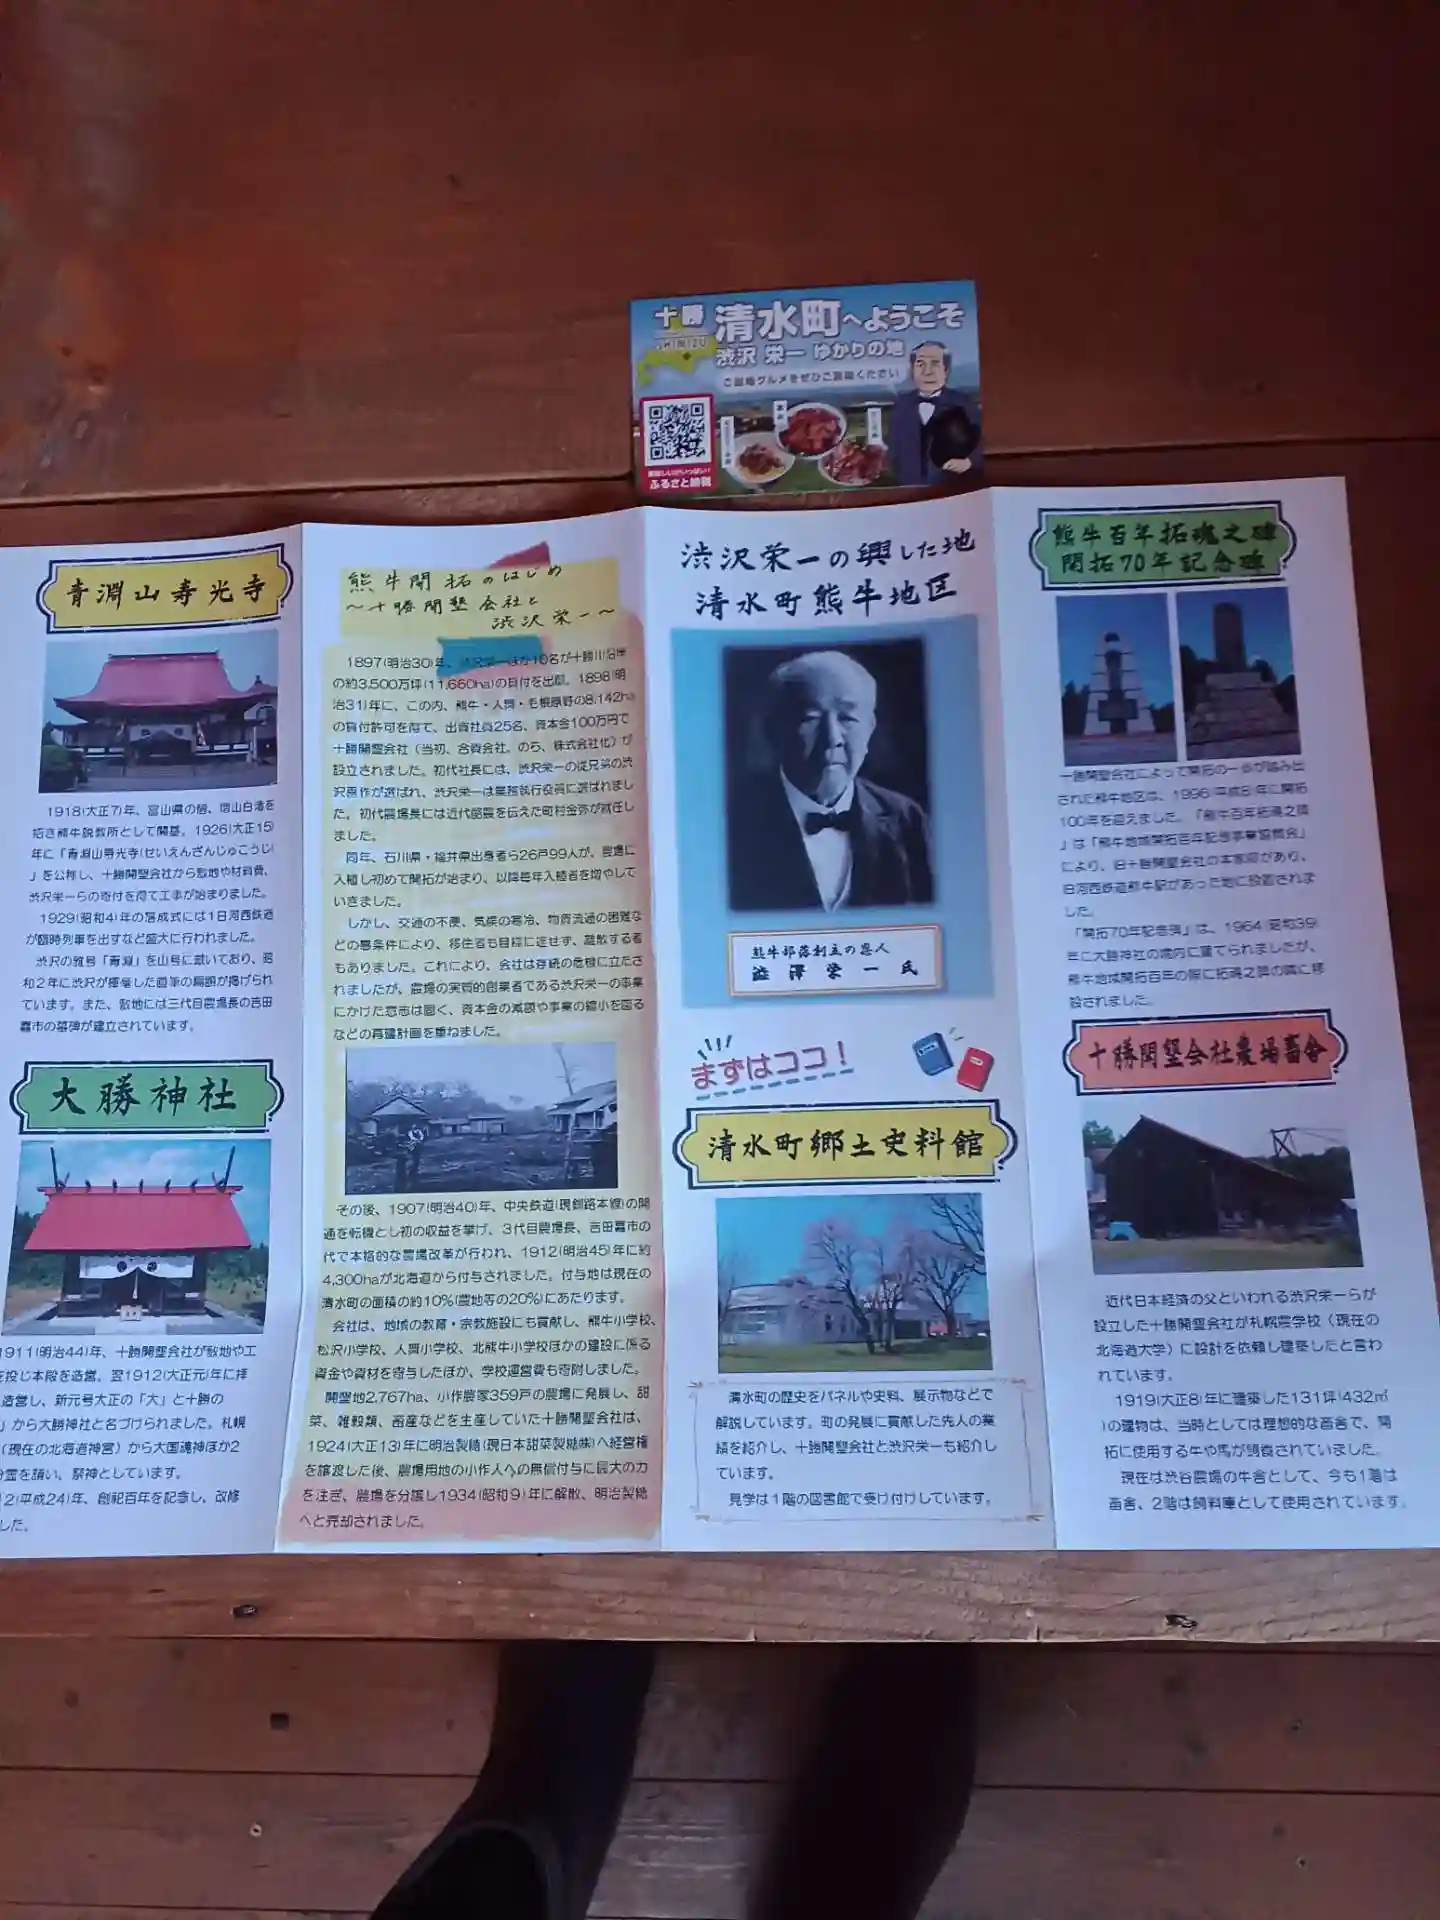 十勝
清水町へようこそ
SHIMIZU
渋沢 栄一 ゆかりの地
ご当地グルメをぜひご賞味ください
ふるさと納税
青淵山寿光寺
1918(大正7)年、富山県の僧、
拓き熊牛説教所として開基。1926(大正15)
年に「青淵山寿光寺(せいえんざんじゅこうじ)
」を公称し、十勝開墾会社から敷地や材料費、
渋沢栄一らの寄付を得て工事が始まりました。
1929(昭和4)年の落成式には1日河西鉄道
が臨時列車を出すなど盛大に行われました。
渋沢の雅号「青淵」を山号に戴いており、昭
和2年に渋沢が揮毫した直筆の扁額が掲げられ
ています。また、敷地には三代目農場長の吉田
嘉市の墓碑が建立されています。
大勝神社
1911(明治44)年、十勝開墾会社が敷地や工
を投じ本殿を造営。翌1912(大正元)年に拝
造営し、新元号大正の「大」と十勝の
」から大勝神社と名づけられました。札幌
(現在の北海道神宮)から大国魂神ほか2
分霊を請い、祭神としています。
2(平成24)年、創祀百年を記念し、改修
した。
熊牛開拓のはじめ
～十勝開墾会社と
渋沢栄一～
1897(明治30)年、渋沢栄一ほか10名が十勝川沿岸
の約3,500万坪(11,660ha)の貸付を出願。1898(明
治31)年に、この内、熊牛・人舞・毛根原野の8,142ha
の貸付許可を得て、出資社員25名、資本金100万円で
十勝開墾会社(当初、合資会社。のち、株式会社化)が
設立されました。初代社長には、渋沢栄一の従兄弟の渋
沢喜作が選ばれ、渋沢栄一は業務執行役員に選ばれまし
た。初代農場長には近代酪農を伝えた町村金弥が就任し
ました。
同年、石川県・福井県出身者ら26戸99人が、農場に
入植し初めて開拓が始まり、以降毎年入植者を増やして
いきました。
しかし、交通の不便、気候の寒冷、物資流通の困難な
どの悪条件により、移住者も目標に達せず、離散する者
もありました。これにより、会社は存続の危機に立たさ
れましたが、農場の実質的創業者である渋沢栄一の事業
にかけた意志は固く、資本金の減額や事業の縮小を図る
などの再建計画を重ねました。
その後、1907(明治40)年、中央鉄道(現釧路本線)の開
通を転機とし初の収益を挙げ、3代目農場長、吉田嘉市の
代で本格的な農場改革が行われ、1912(明治45)年に約
4,300haが北海道から付与されました。付与地は現在の
清水町の面積の約10%(農地等の20%)にあたります。
会社は、地域の教育・宗教施設にも貢献し、熊牛小学校、
松沢小学校、人舞小学校、北熊牛小学校ほかの建設に係る
資金や資材を寄与したほか、学校運営費も寄附しました。
開墾地2,767ha、小作農家359戸の農場に発展し、甜
菜、雑穀類、畜産などを生産していた十勝開墾会社は、
1924(大正13)年に明治製糖(現日本甜菜製糖㈱)へ経営権
を譲渡した後、農場用地の小作人への無償付与に最大の力
を注ぎ、農場を分譲し1934(昭和9)年に解散、明治製糖
へと売却されました。
渋沢栄一の興した地
清水町熊牛地区
熊牛部落創立の恩人
澁澤栄一氏
まずはココ！
清水町郷土史料館
清水町の歴史をパネルや史料、展示物などで
解説しています。町の発展に貢献した先人の業
績を紹介し、十勝開墾会社と渋沢栄一も紹介し
ています。
見学は1階の図書館で受け付けしています。
熊牛百年拓魂之碑
開拓70年記念碑
十勝開墾会社によって開拓の一歩が踏み出
された熊牛地区は、1996(平成8)年に開拓
100年を迎えました。「熊牛百年拓魂之碑
」は「熊牛地域開拓百年記念事業協賛会」
により、旧十勝開墾会社の本家邸があり、
旧河西鉄道熊牛駅があった地に設置されま
した。
「開拓70年記念碑」は、1964(昭和39)
年に大勝神社の境内に建てられましたが、
熊牛地域開拓百年の際に拓魂之碑の隣に移
設されました。
十勝開墾会社農場畜舎
近代日本経済の父といわれる渋沢栄一らが
設立した十勝開墾会社が札幌農学校(現在の
北海道大学)に設計を依頼し建築したと言わ
れています。
1919(大正8)年に建築した131坪(432㎡
)の建物は、当時としては理想的な畜舎で、開
拓に使用する牛や馬が飼養されていました。
現在は渋谷農場の牛舎として、今も1階は
畜舎、2階は飼料庫として使用されています。